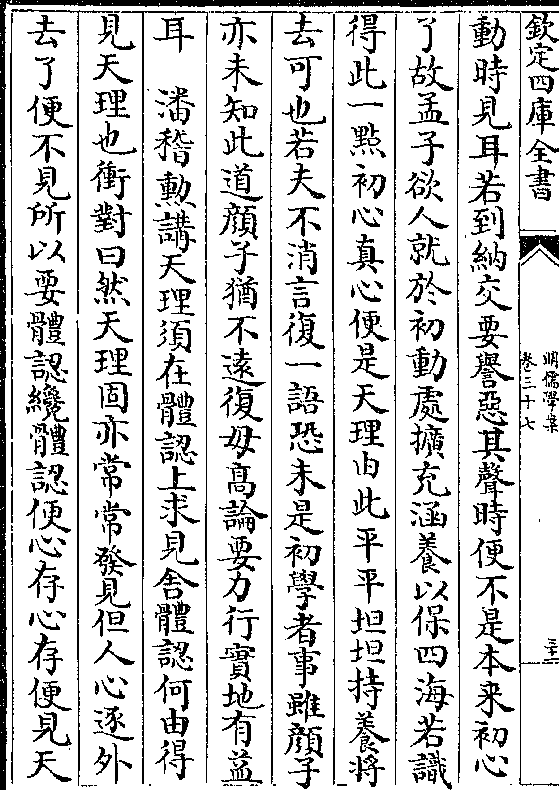 欽定四庫全書
明儒學案
卷三十七
動時見耳若到納交要譽惡其聲時便不是本来初心
了故孟子欲人就於初動處擴充涵養以保四海若識
得此一點初心真心便是天理由此平平坦坦持養將
去可也若夫不消言復一語恐未是初學者事雖顔子
亦未知此道顔子猶不遠復毋髙論要力行實地有益
耳　潘稽勲講天理須在體認上求見舍體認何由得
見天理也衝對曰然天理固亦常常發見但人心逐外
去了便不見所以要體認纔體認便心存心存便見天